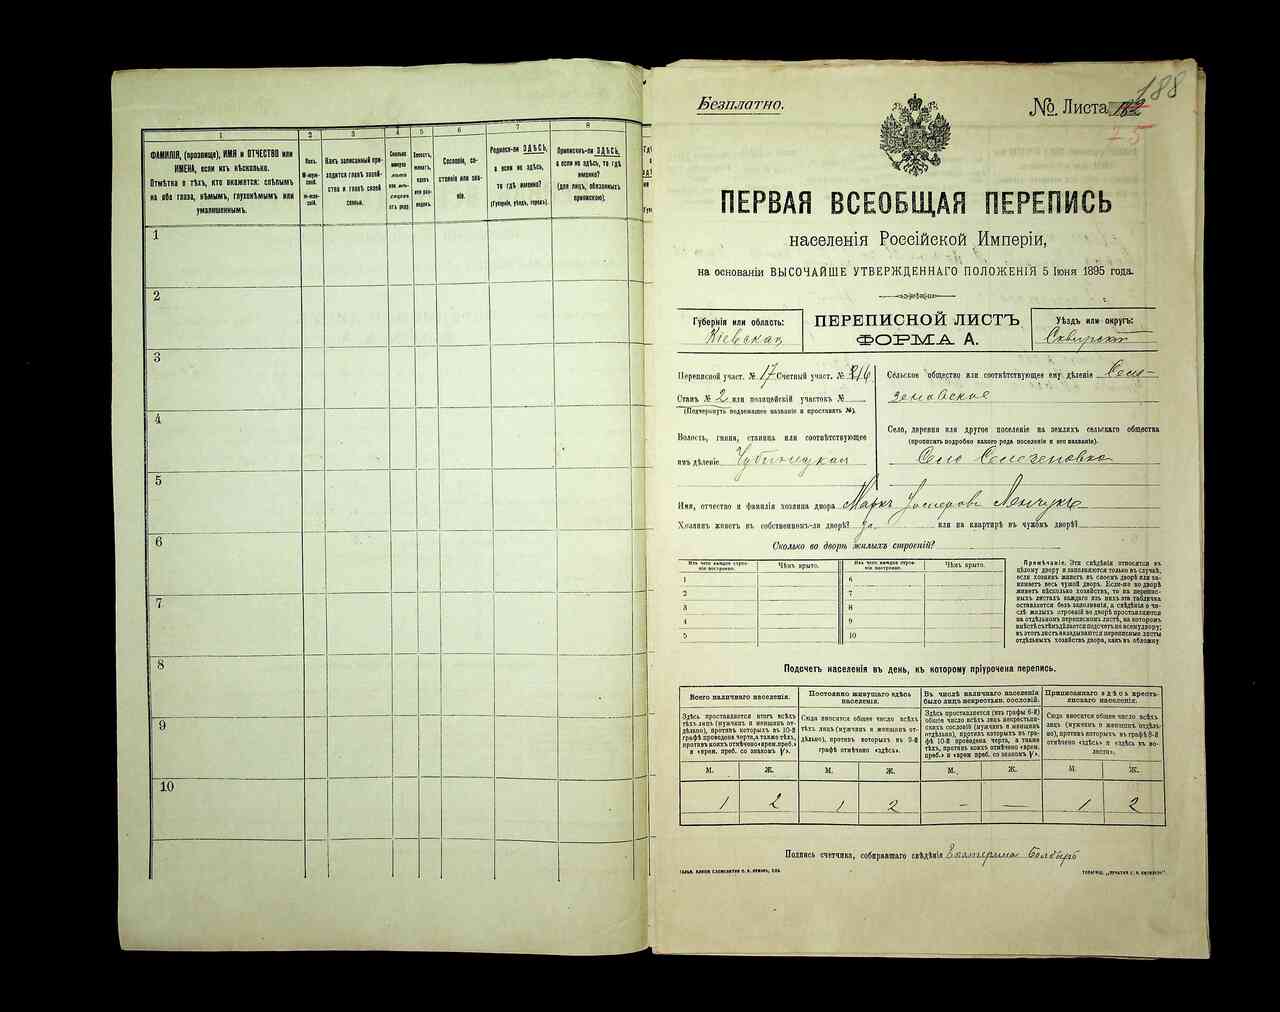 1
2
3
4
5
6
7
8
ФАМИЛІЯ, (прозвище), ИМЯ и ОТЧЕСТВО или
ИМЕНА, если ихъ нѣсколько.
Отмѣтка о тѣхъ, кто окажется: слѣпымъ
на оба глаза, нѣмымъ, глухонѣмымъ или
умалишеннымъ.
Полъ.
М-муж-
ской.
Ж-жен-
скій.
Какъ записанный при-
ходится главѣ хозяй-
ства и главѣ своей
семьи.
Сколько
минуло
лѣтъ
или мѣ-
сяцевъ
отъ роду.
Холостъ,
женатъ,
вдовъ
или раз-
веденъ.
Сословіе, со-
стояніе или зва-
ніе.
Родился-ли ЗДѢСЬ,
а если не здѣсь,
то гдѣ именно?
(Губернія, уѣздъ, городъ).
Приписанъ-ли ЗДѢСЬ,
а если не здѣсь, то гдѣ
именно?
(для лицъ, обязанныхъ
припискою).
1
2
3
4
5
6
7
8
9
10
Безплатно.
№ Листа
188
ПЕРВАЯ ВСЕОБЩАЯ ПЕРЕПИСЬ
населенія Россійской Имперіи,
на основаніи ВЫСОЧАЙШЕ УТВЕРЖДЕННАГО ПОЛОЖЕНІЯ 5 Іюня 1895 года.
Губернія или область:
Кіевская
ПЕРЕПИСНОЙ ЛИСТЪ
ФОРМА А.
Уѣздъ или округъ:
Сквирскій
Переписной участ. № 17 Счетный участ. №
Станъ № 2 или полицейскій участокъ №
(Подчеркнуть подлежащее названіе и проставить №).
Волость, гмина, станица или соотвѣтствующее
имъ дѣленіе Чубинецкая
Сельское общество или соотвѣтствующее ему дѣленіе Селе-
зеновское
Село, деревня или другое поселеніе на земляхъ сельскаго общества
(прописать подробно какого рода поселеніе и его названіе).
Село Селезеновка
Имя, отчество и фамилія хозяина двора Маркъ
Хозяинъ живетъ въ собственномъ-ли дворѣ? да или на квартирѣ въ чужомъ дворѣ?
Сколько во дворѣ жилыхъ строеній?
Изъ чего каждое строе-
ніе построено.
Чѣмъ крыто.
Изъ чего каждое строе-
ніе построено.
Чѣмъ крыто.
1
2
3
4
5
6
7
8
9
10
Примѣчаніе. Эти свѣдѣнія относятся къ
цѣлому двору и заполняются только въ случаѣ,
если хозяинъ живетъ въ своемъ дворѣ или за-
нимаетъ весь чужой дворъ. Если-же во дворѣ
живетъ нѣсколько хозяйствъ, то на перепис-
ныхъ листахъ каждаго изъ нихъ эта табличка
оставляется безъ заполненія, а свѣдѣнія о чи-
слѣ жилыхъ строеній во дворѣ проставляются
на отдѣльномъ переписномъ листѣ, на которомъ
вмѣстѣ съ тѣмъ дѣлается подсчетъ по всему двору;
въ этотъ листъ вкладываются переписные листы
отдѣльныхъ хозяйствъ двора, какъ въ обложку.
Подсчетъ населенія въ день, къ которому пріурочена перепись.
Всего наличнаго населенія.
Здѣсь проставляется итогъ всѣхъ
тѣхъ лицъ (мужчинъ и женщинъ от-
дѣльно), противъ которыхъ въ 10-й
графѣ проведена черта, а также тѣхъ,
противъ коихъ отмѣчено «врем. преб.»
и «врем. преб. со знакомъ V».
Постоянно живущаго здѣсь
населенія.
Сюда вносится общее число всѣхъ
тѣхъ лицъ (мужчинъ и женщинъ от-
дѣльно), противъ которыхъ въ 9-й
графѣ отмѣчено «здѣсь».
Въ числѣ наличнаго населенія
было лицъ некрестьян. сословій.
Здѣсь проставляется (изъ графы 6-й)
общее число всѣхъ лицъ некрестьян-
скихъ сословій (мужчинъ и женщинъ
отдѣльно), противъ которыхъ въ гра-
фѣ 10-й проведена черта, а также
тѣхъ, противъ коихъ отмѣчено «врем.
преб.» и «врем. преб. со знакомъ V».
Приписаннаго здѣсь кресть-
янскаго населенія.
Сюда вносится общее число всѣхъ
лицъ (мужчинъ и женщинъ отдѣль-
но), противъ которыхъ въ графѣ 8-й
отмѣчено «здѣсь» и «здѣсь въ во-
лости».
М. Ж. М. Ж. М. Ж. М. Ж.
1 2 1 2 — — 1 2
Подпись счетчика, собиравшаго свѣдѣнія Екатерина